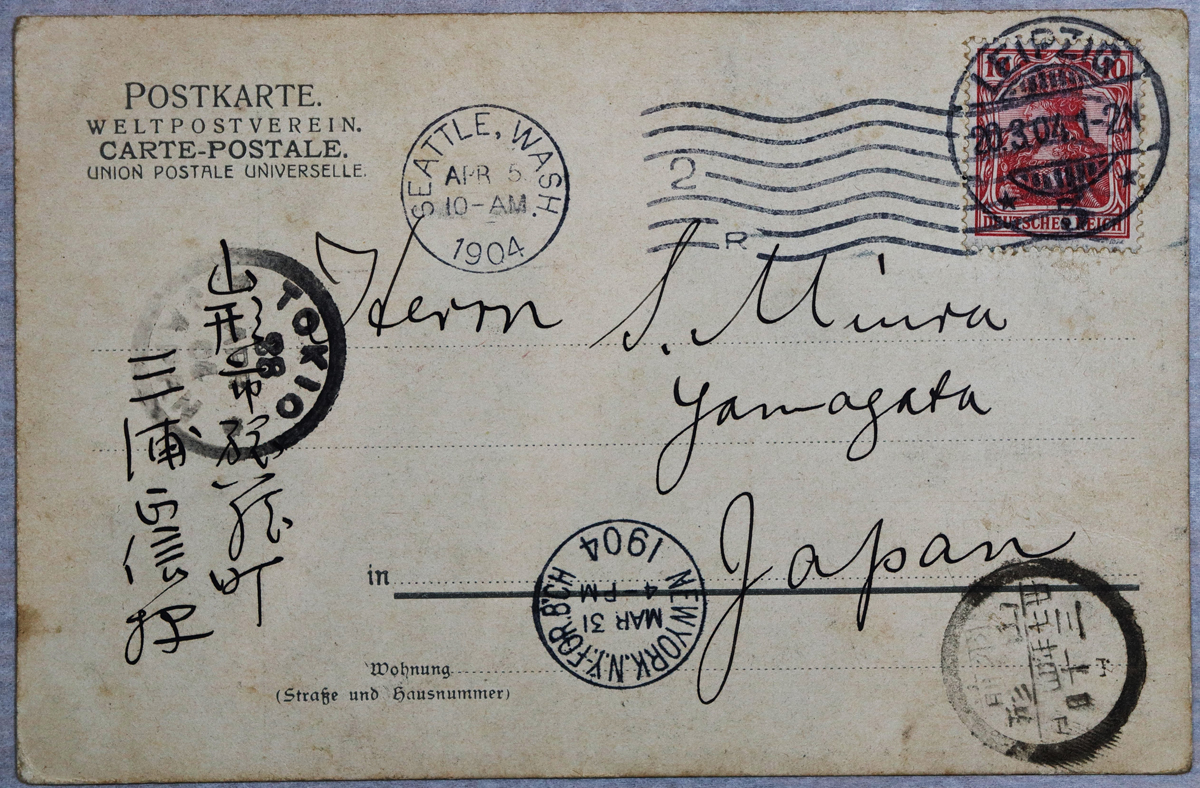 POSTKARTE.
WELTPOSTVEREIN.
CARTE-POSTALE.
UNION POSTALE UNIVERSELLE.
SEATTLE, WASH.
APR 5
10-AM.
1904
2
R
LEIPZIG
20.3.04.1-2N
10
DEUTSCHES REICH
Herrn S. Miura
Yamagata
Japan
山形市
三浦
TOKIO
in
NEW YORK. N.Y. FOR. B'CH.
MAR 31
4-PM
1904
Wohnung
(Straße und Hausnummer)